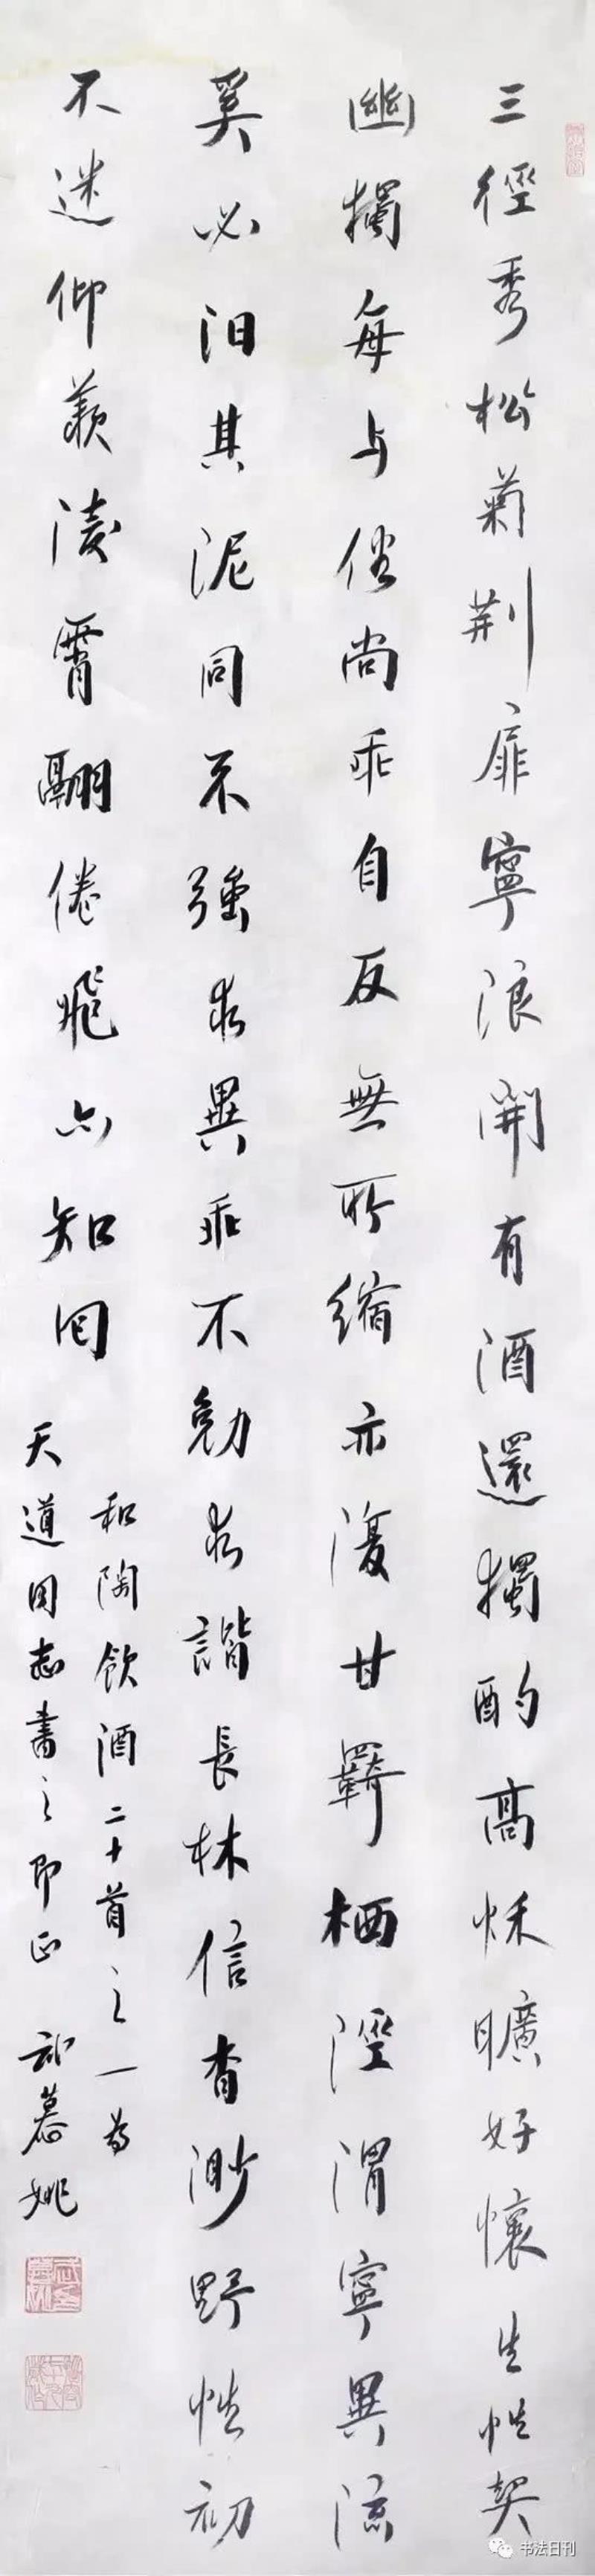 三徑秀松菊荆扉寧浪開有酒還獨酌高秋曠好懷生性契
幽獨每与俗尚乖自反無所縮亦復甘羈栖涇渭寧異流
奚必汩其泥同不強求異乖不勉求諧長林信杳渺野性初
不迷仰羨淩霄翮倦飛亦知回
和陶飲酒二十首之一為
天道同志書之即正 慕姚
书法日刊